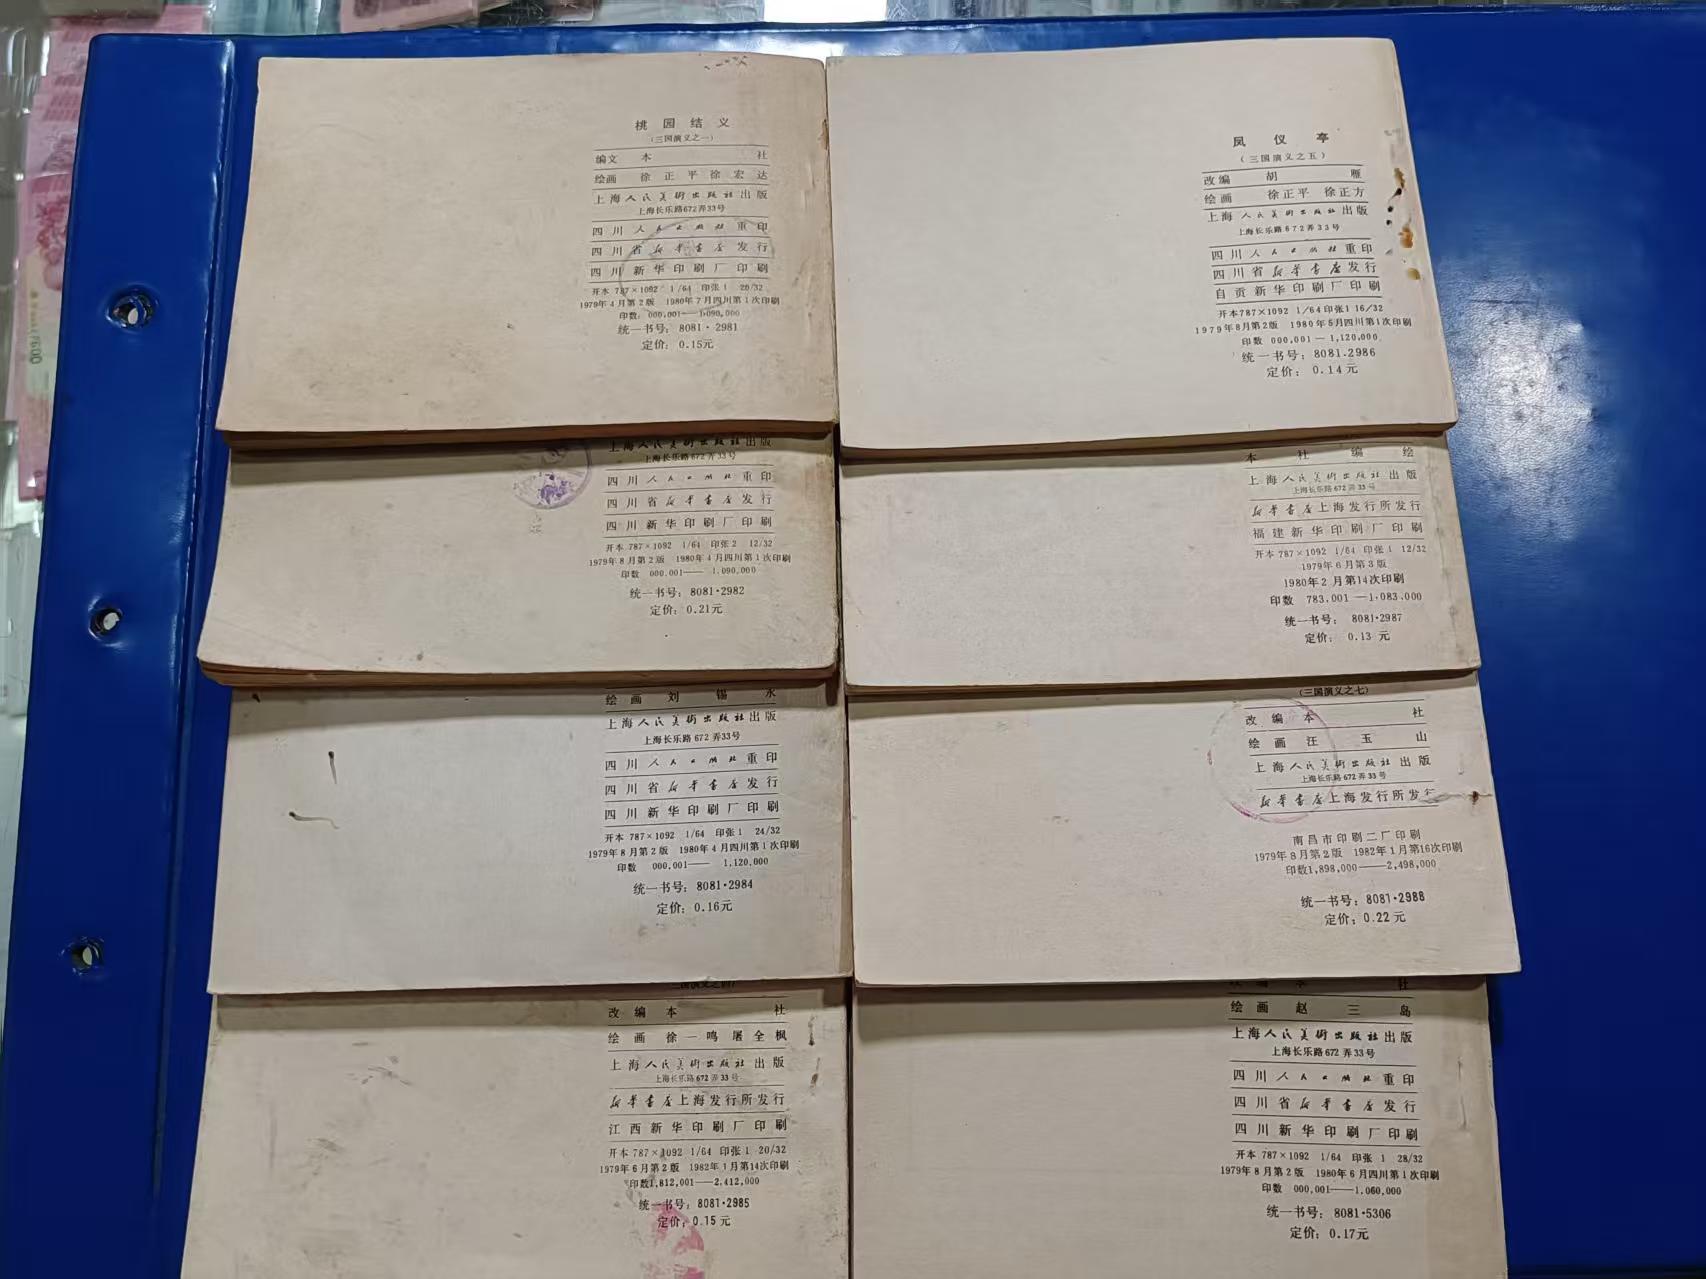 桃园结义
(三国演义之一)
编文 本 社
绘画 徐正平 徐宏达
上海人民美術出版社出版
上海长乐路672弄33号
四川人民出版社重印
四川省新华書店发行
四川新华印刷厂印刷
开本 787×1092 1/64 印张 1 20/32
1979年4月第2版 1980年7月四川第1次印刷
印数: 000,001—1,090,000
统一书号: 8081·2981
定价: 0.15元
上海人民美術出版社出版
上海长乐路672弄33号
四川人民出版社重印
四川省新华書店发行
四川新华印刷厂印刷
开本 787×1092 1/64 印张 2 12/32
1979年8月第2版 1980年4月四川第1次印刷
印数 000,001—1,090,000
统一书号: 8081·2982
定价: 0.21元
绘画 刘锡永
上海人民美術出版社出版
上海长乐路672弄33号
四川人民出版社重印
四川省新华書店发行
四川新华印刷厂印刷
开本 787×1092 1/64 印张 1 24/32
1979年8月第2版 1980年4月四川第1次印刷
印数 000,001—1,120,000
统一书号: 8081·2984
定价: 0.16元
三国演义之四
改编 本 社
绘画 徐一鸣 屠全枫
上海人民美術出版社出版
上海长乐路672弄33号
新华書店上海发行所发行
江西新华印刷厂印刷
开本 787×1092 1/64 印张 1 20/32
1979年6月第2版 1982年1月第14次印刷
印数1,812,001—2,412,000
统一书号: 8081·2985
定价: 0.15元
凤仪亭
(三国演义之五)
改编 胡 雁
绘画 徐正平 徐正方
上海人民美術出版社出版
上海长乐路672弄33号
四川人民出版社重印
四川省新华書店发行
自贡新华印刷厂印刷
开本787×1092 1/64 印张1 16/32
1979年8月第2版 1980年5月四川第1次印刷
印数 000,001—1,120,000
统一书号: 8081.2986
定价: 0.14元
本社编绘
上海人民美術出版社出版
上海长乐路672弄33号
新华書店上海发行所发行
福建新华印刷厂印刷
开本 787×1092 1/64 印张 1 12/32
1979年6月第3版
1980年2月第14次印刷
印数 783,001—1,083,000
统一书号: 8081·2987
定价: 0.13元
(三国演义之七)
改编 本 社
绘画 汪玉山
上海人民美術出版社出版
上海长乐路672弄33号
新华書店上海发行所发行
南昌市印刷二厂印刷
1979年8月第2版 1982年1月第16次印刷
印数1,898,000—2,498,000
统一书号: 8081·2988
定价: 0.22元
改编 本 社
绘画 赵三岛
上海人民美術出版社出版
上海长乐路672弄33号
四川人民出版社重印
四川省新华書店发行
四川新华印刷厂印刷
开本 787×1092 1/64 印张 1 28/32
1979年8月第2版 1980年6月四川第1次印刷
印数 000,001—1,060,000
统一书号: 8081·5306
定价: 0.17元